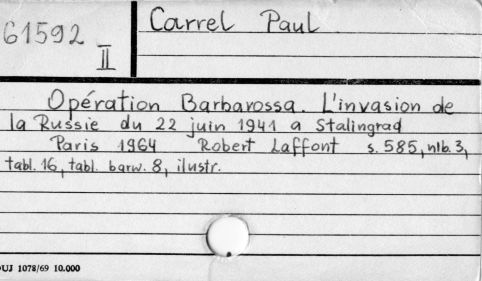 61592
II
Carrel Paul
Opération Barbarossa. L'invasion de
la Russie du 22 juin 1941 a Stalingrad
Paris 1964 Robert Laffont s. 585, nlb. 3,
tabl. 16, tabl. barw. 8, ilustr.
UJ 1078/69 10.000